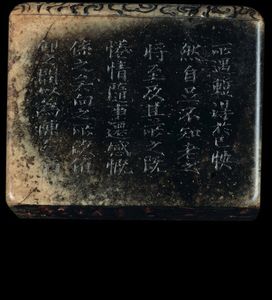 所遇暫得於己快
然自足不知老之
將至及其所之既
惓情隨事遷感慨
係之矣向之所欣俛
仰之間以為陳